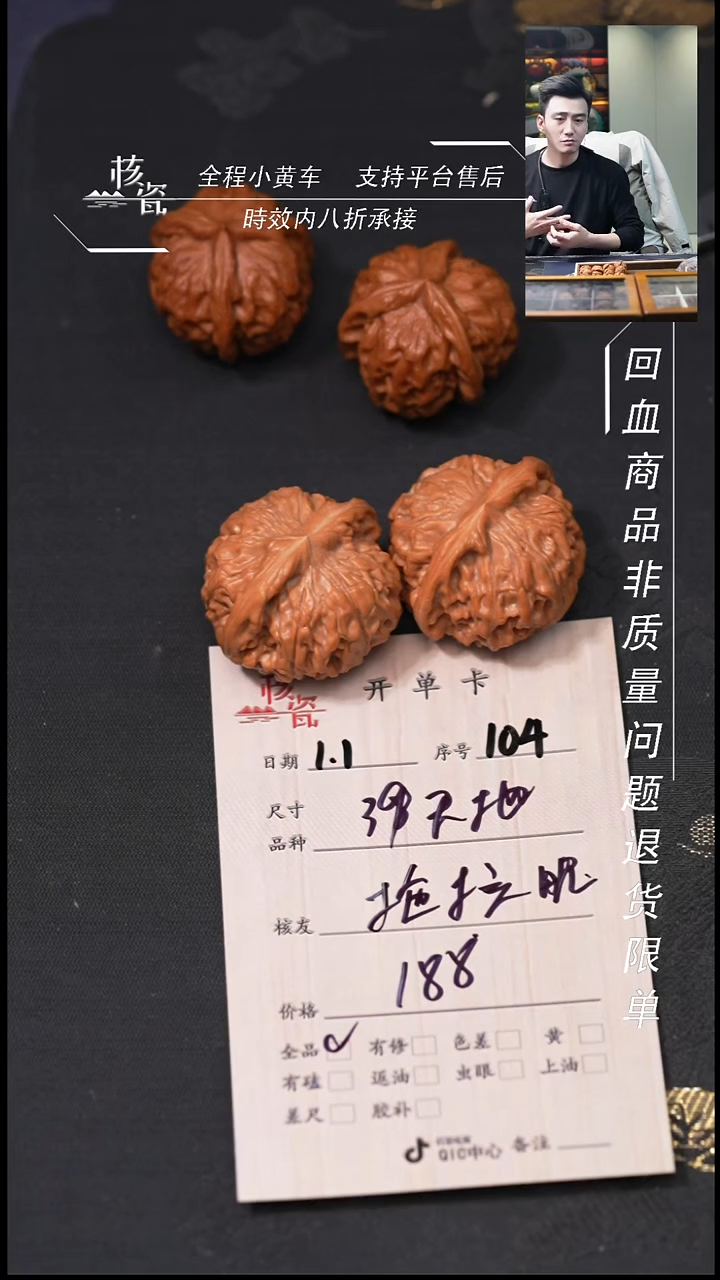 核瓷
全程小黄车 支持平台售后
時效内八折承接
回血商品非质量问题退货限单
核瓷
开单卡
日期 1.1 序号 104
尺寸
品种 39天地
核友 拖拉肥
价格 188
全品 有修 色差 黄
有磕 返油 虫眼 上油
差尺 胶补
QIC中心 备注